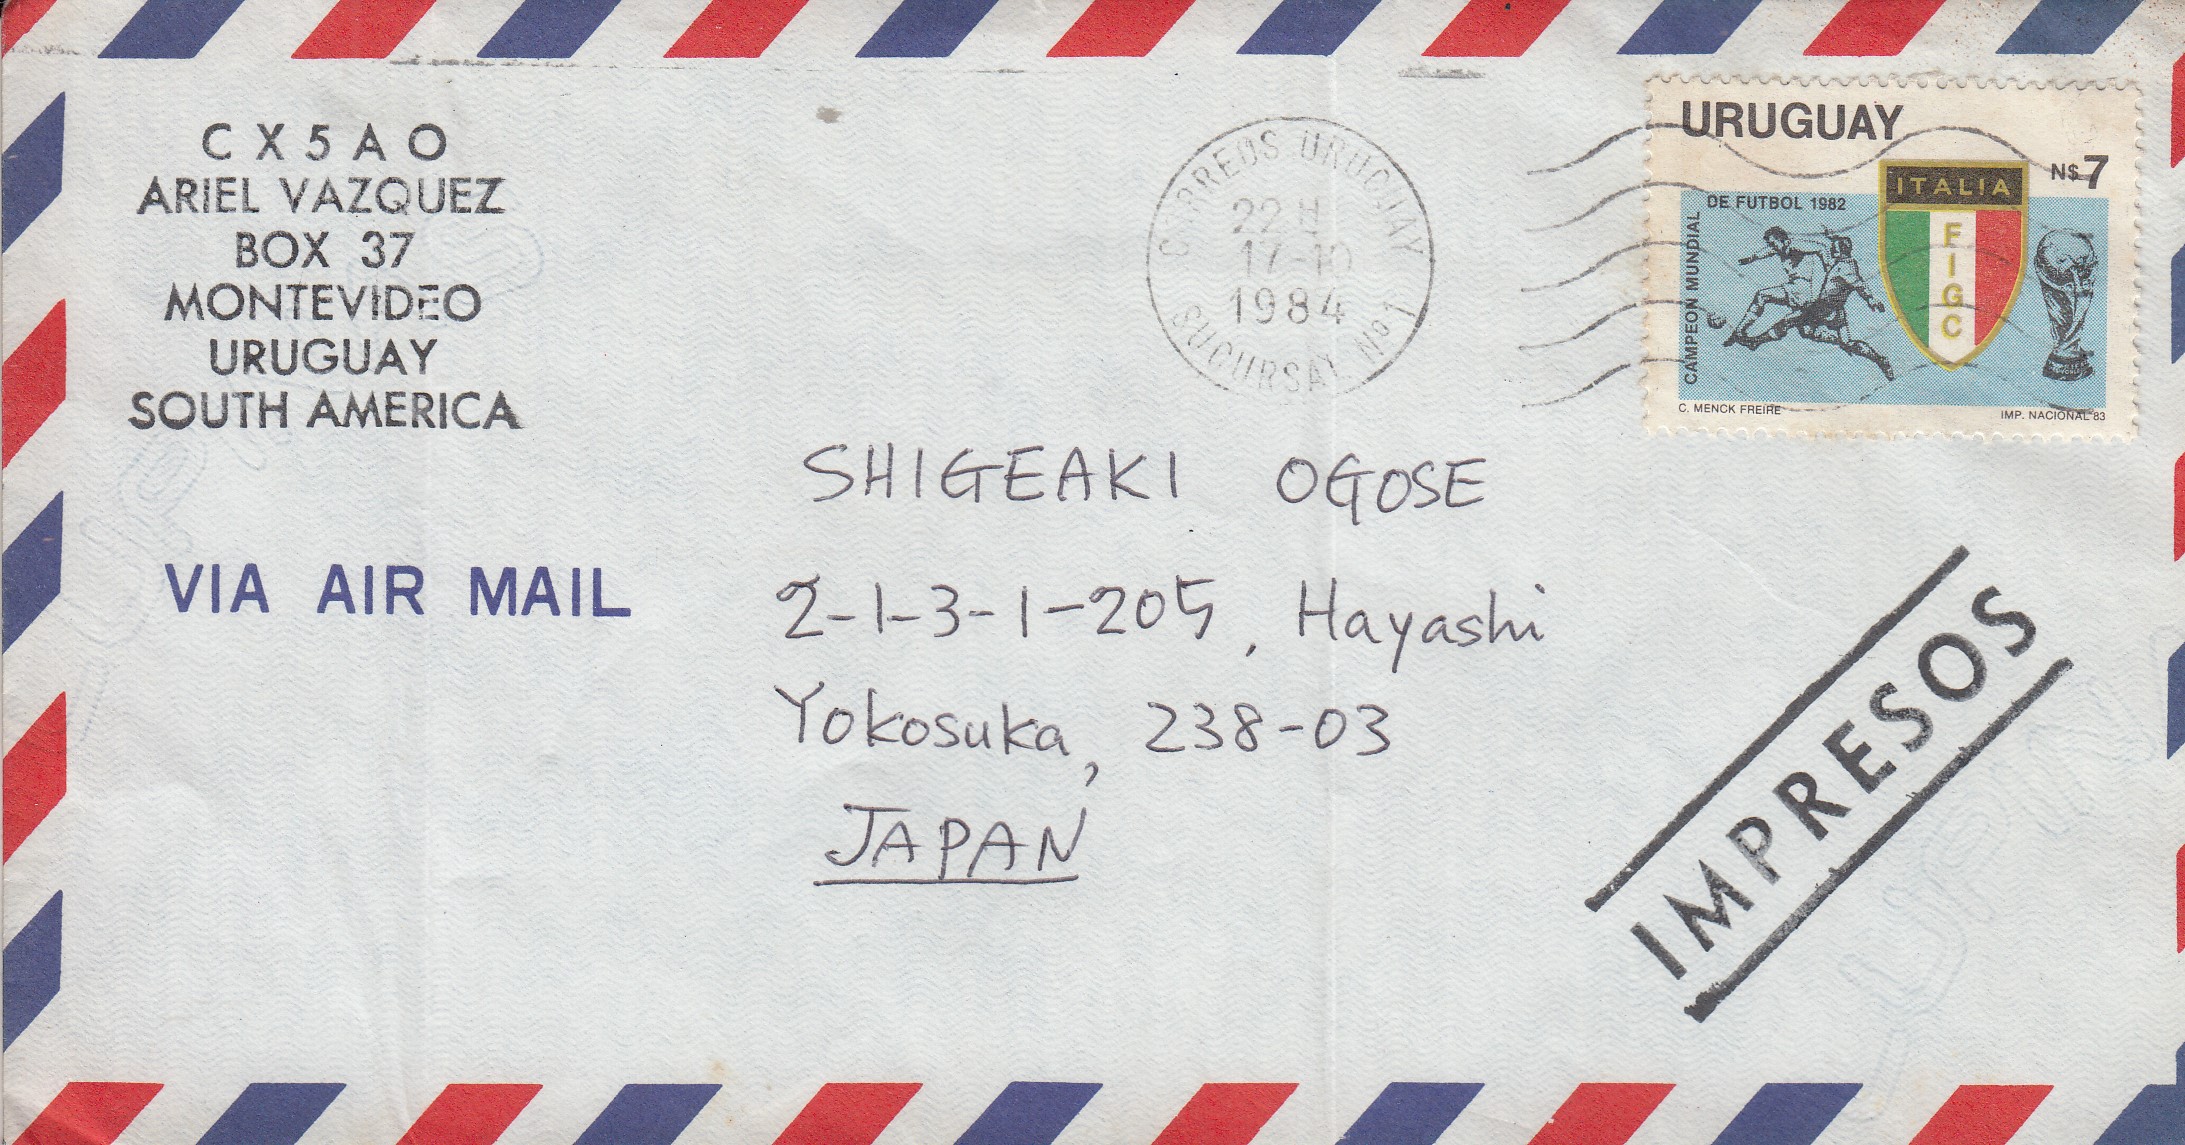 C X 5 A O
ARIEL VAZQUEZ
BOX 37
MONTEVIDEO
URUGUAY
SOUTH AMERICA
VIA AIR MAIL
CORREOS URUGUAY
22 H
17-10
1984
SUCURSAL Nº 1
URUGUAY
N$7
ITALIA
FIGC
CAMPEON MUNDIAL
DE FUTBOL 1982
C. MENCK FREIRE
IMP. NACIONAL 83
SHIGEAKI OGOSE
2-1-3-1-205, Hayashi
Yokosuka, 238-03
JAPAN
IMPRESOS